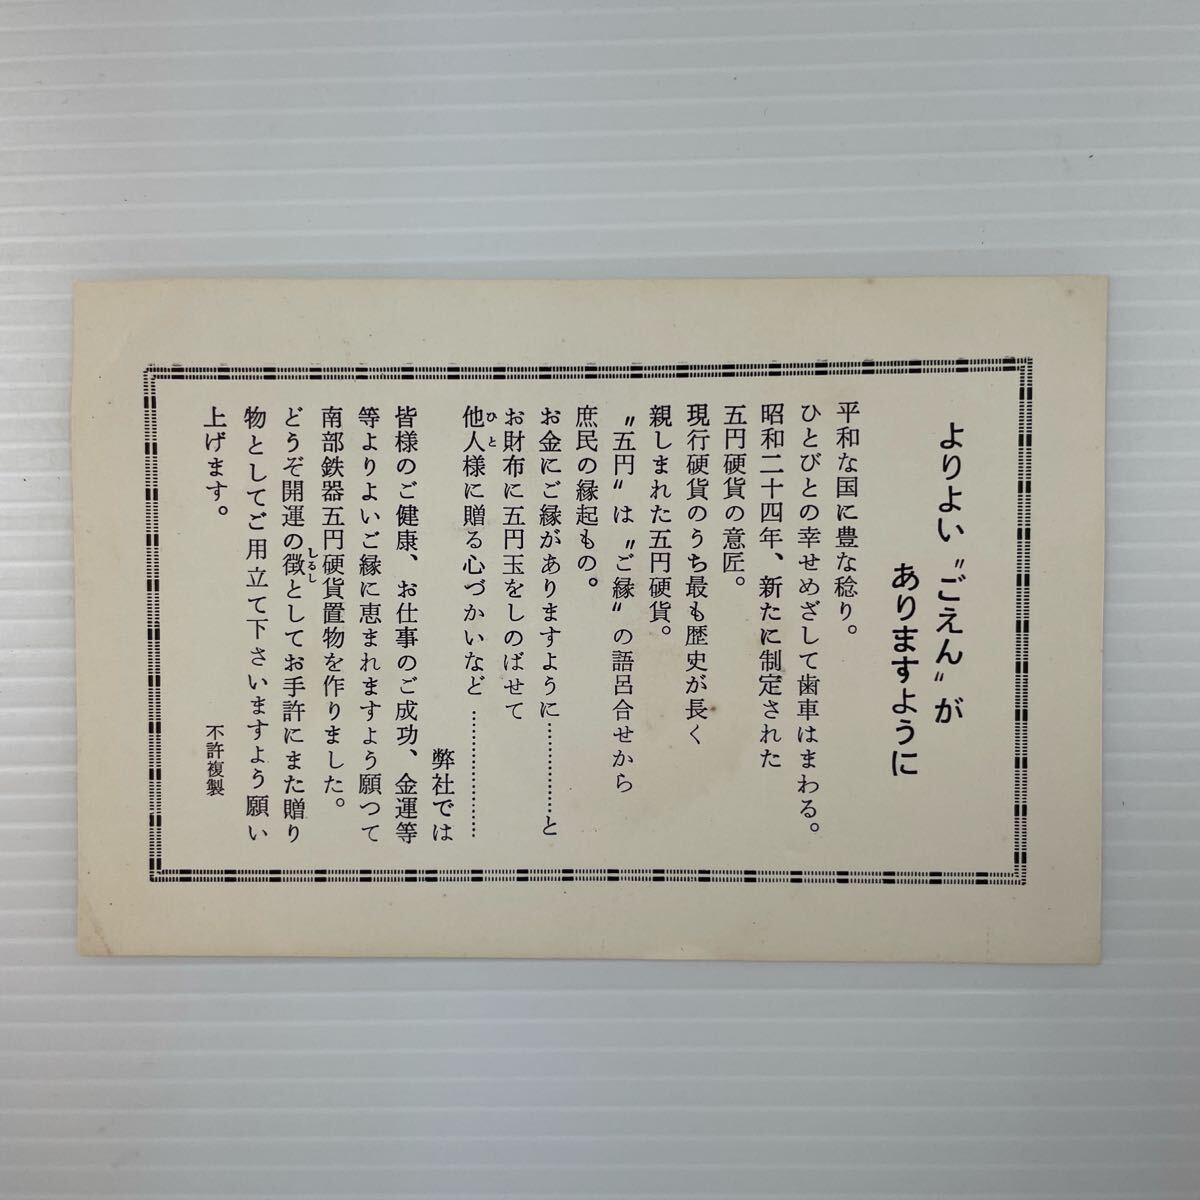 よりよい〝ごえん〟が
ありますように
平和な国に豊な稔り。
ひとびとの幸せめざして歯車はまわる。
昭和二十四年、新たに制定された
五円硬貨の意匠。
現行硬貨のうち最も歴史が長く
親しまれた五円硬貨。
〝五円〟は〝ご縁〟の語呂合せから
庶民の縁起もの。
お金にご縁がありますように…………と
お財布に五円玉をしのばせて
他人様に贈る心づかいなど………………
ひと
弊社では
皆様のご健康、お仕事のご成功、金運等
等よりよいご縁に恵まれますよう願つて
南部鉄器五円硬貨置物を作りました。
どうぞ開運の徴としてお手許にまた贈り
しるし
物としてご用立て下さいますよう願い
上げます。
不許複製